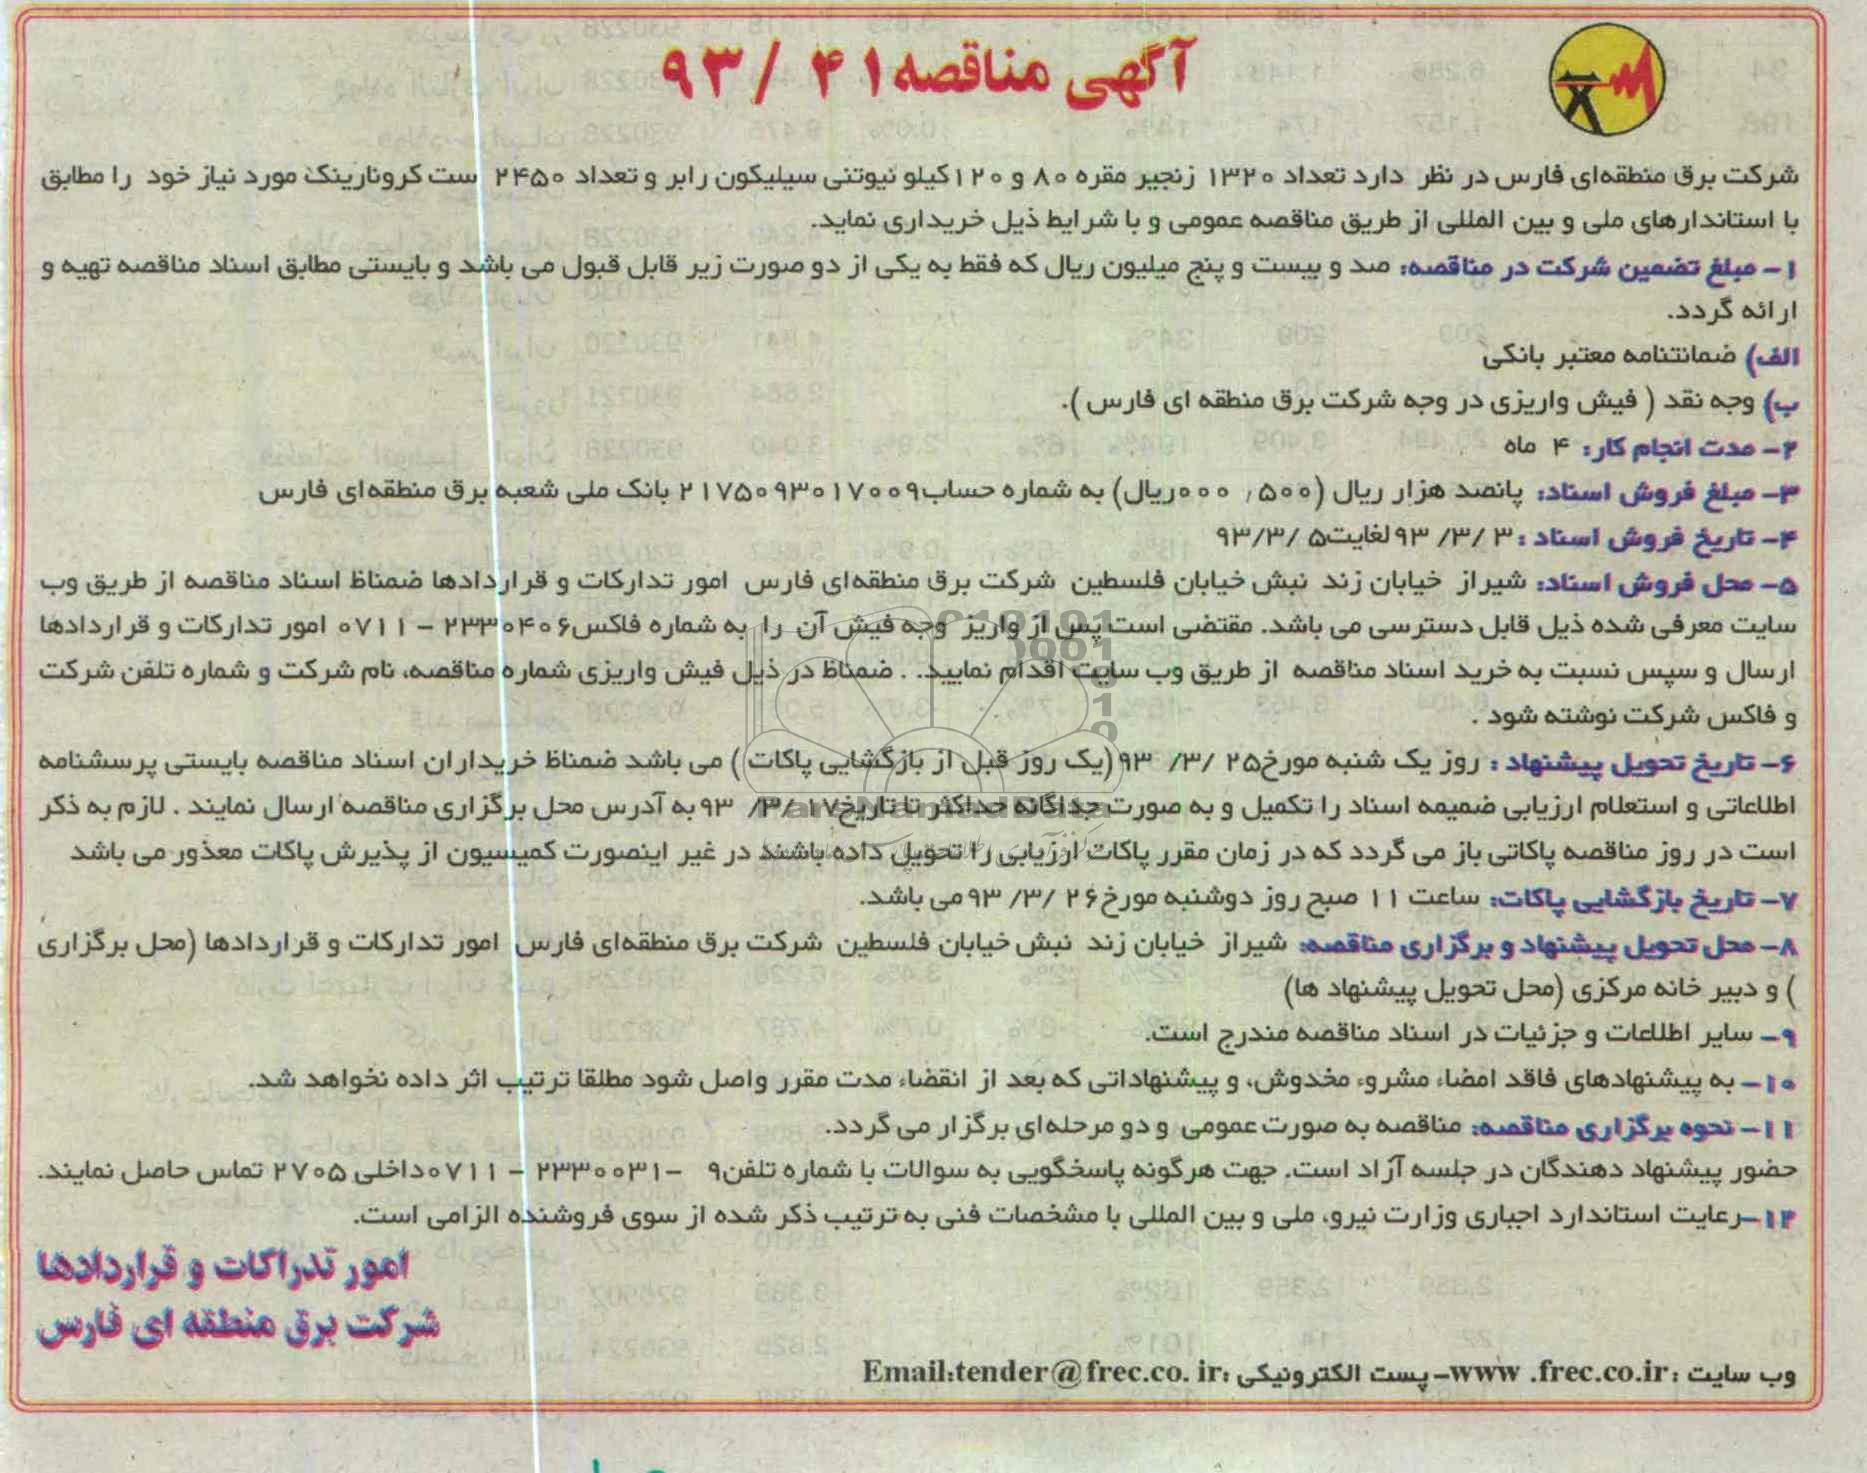 آگهی مناقصه ۴۱ /۹۳
شرکت برق منطقه‌ای فارس در نظر دارد تعداد ۱۳۲۰ زنجیر مقره ۸۰ و ۱۲۰ کیلو نیوتنی سیلیکون رابر و تعداد ۲۴۵۰ ست کرونارینگ مورد نیاز خود را مطابق
با استاندارهای ملی و بین المللی از طریق مناقصه عمومی و با شرایط ذیل خریداری نماید.
۱- مبلغ تضمین شرکت در مناقصه: صد و بیست و پنج میلیون ریال که فقط به یکی از دو صورت زیر قابل قبول می باشد و بایستی مطابق اسناد مناقصه تهیه و
ارائه گردد.
الف) ضمانتنامه معتبر بانکی
ب) وجه نقد ( فیش واریزی در وجه شرکت برق منطقه ای فارس ).
۲- مدت انجام کار: ۴ ماه
۳- مبلغ فروش اسناد: پانصد هزار ریال (۵۰۰, ۰۰۰ریال) به شماره حساب۲۱۷۵۰۹۳۰۱۷۰۰۹ بانک ملی شعبه برق منطقه‌ای فارس
۴- تاریخ فروش اسناد : ۳ /۳/ ۹۳ لغایت۵ /۹۳/۳
۵- محل فروش اسناد: شیراز خیابان زند نبش خیابان فلسطین شرکت برق منطقه‌ای فارس امور تدارکات و قراردادها ضمناظ اسناد مناقصه از طریق وب
سایت معرفی شده ذیل قابل دسترسی می باشد. مقتضی است پس از واریز وجه فیش آن را به شماره فاکس۲۳۳۰۴۰۶ – ۰۷۱۱ امور تدارکات و قراردادها
ارسال و سپس نسبت به خرید اسناد مناقصه از طریق وب سایت اقدام نمایید. . ضمناظ در ذیل فیش واریزی شماره مناقصه، نام شرکت و شماره تلفن شرکت
و فاکس شرکت نوشته شود .
۶- تاریخ تحویل پیشنهاد : روز یک شنبه مورخ۲۵ /۳/ ۹۳ (یک روز قبل از بازگشایی پاکات ) می باشد ضمناظ خریداران اسناد مناقصه بایستی پرسشنامه
اطلاعاتی و استعلام ارزیابی ضمیمه اسناد را تکمیل و به صورت جداگانه حداکثر تا تاریخ۱۷ /۳/ ۹۳ به آدرس محل برگزاری مناقصه ارسال نمایند . لازم به ذکر
است در روز مناقصه پاکاتی باز می گردد که در زمان مقرر پاکات ارزیابی را تحویل داده باشند در غیر اینصورت کمیسیون از پذیرش پاکات معذور می باشد
ParsNamadData
۷- تاریخ بازگشایی پاکات: ساعت ۱۱ صبح روز دوشنبه مورخ۲۶ /۳/ ۹۳ می باشد.
۸- محل تحویل پیشنهاد و برگزاری مناقصه: شیراز خیابان زند نبش خیابان فلسطین شرکت برق منطقه‌ای فارس امور تدارکات و قراردادها (محل برگزاری
) و دبیر خانه مرکزی (محل تحویل پیشنهاد ها)
۹- سایر اطلاعات و جزئیات در اسناد مناقصه مندرج است.
۱۰- به پیشنهادهای فاقد امضاء مشروء مخدوش، و پیشنهاداتی که بعد از انقضاء مدت مقرر واصل شود مطلقا ترتیب اثر داده نخواهد شد.
۱۱- نحوه برگزاری مناقصه: مناقصه به صورت عمومی و دو مرحله‌ای برگزار می گردد.
حضور پیشنهاد دهندگان در جلسه آزاد است. جهت هرگونه پاسخگویی به سوالات با شماره تلفن۹ -۲۳۳۰۰۳۱ – ۰۷۱۱ داخلی ۲۷۰۵ تماس حاصل نمایند.
۱۲-رعایت استاندارد اجباری وزارت نیرو، ملی و بین المللی با مشخصات فنی به ترتیب ذکر شده از سوی فروشنده الزامی است.
امور تدراکات و قراردادها
شرکت برق منطقه ای فارس
وب سایت : www .frec.co.ir-پست الکترونیکی :Email:tender@frec.co. ir